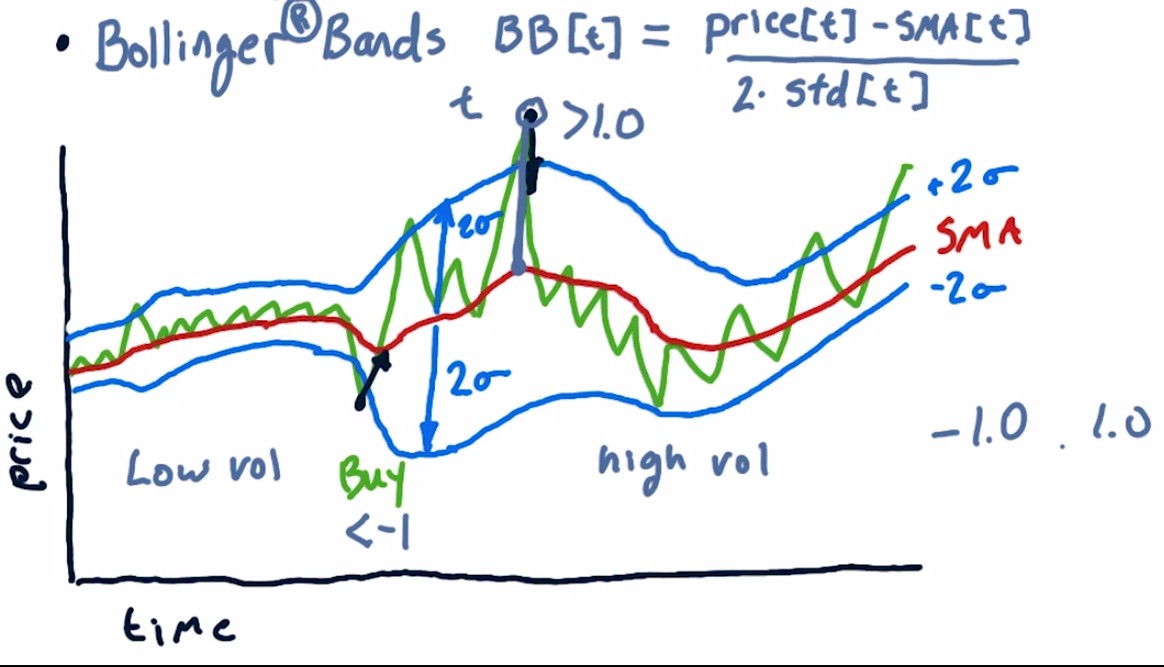 • Bollinger® Bands BB[t] = price[t] - SMA[t]
2· std[t]
t >1.0
+2σ
2σ
SMA
-2σ
2σ
price
-1.0 . 1.0
Low vol
Buy
high vol
<-1
time